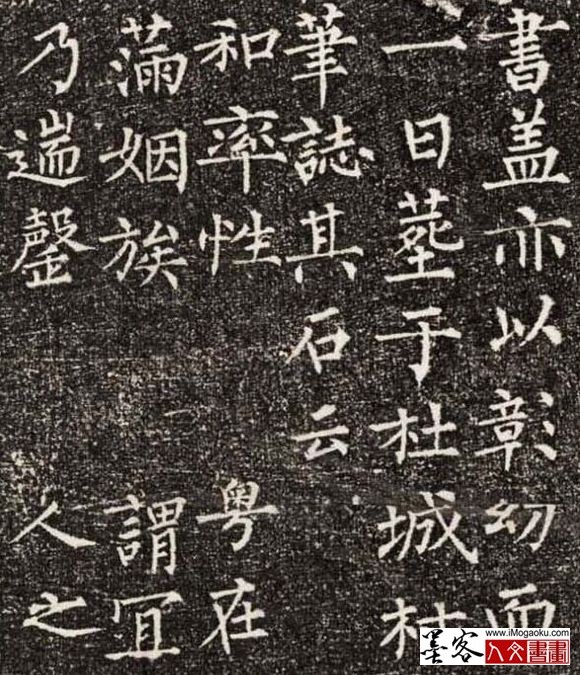 書盖亦以彰幼而
一日塟于杜城
筆誌其石云
和率性 粤在
滿姻族 謂宜
乃遄罄 人之
墨客 www.iMogaoku.com
人文書畫